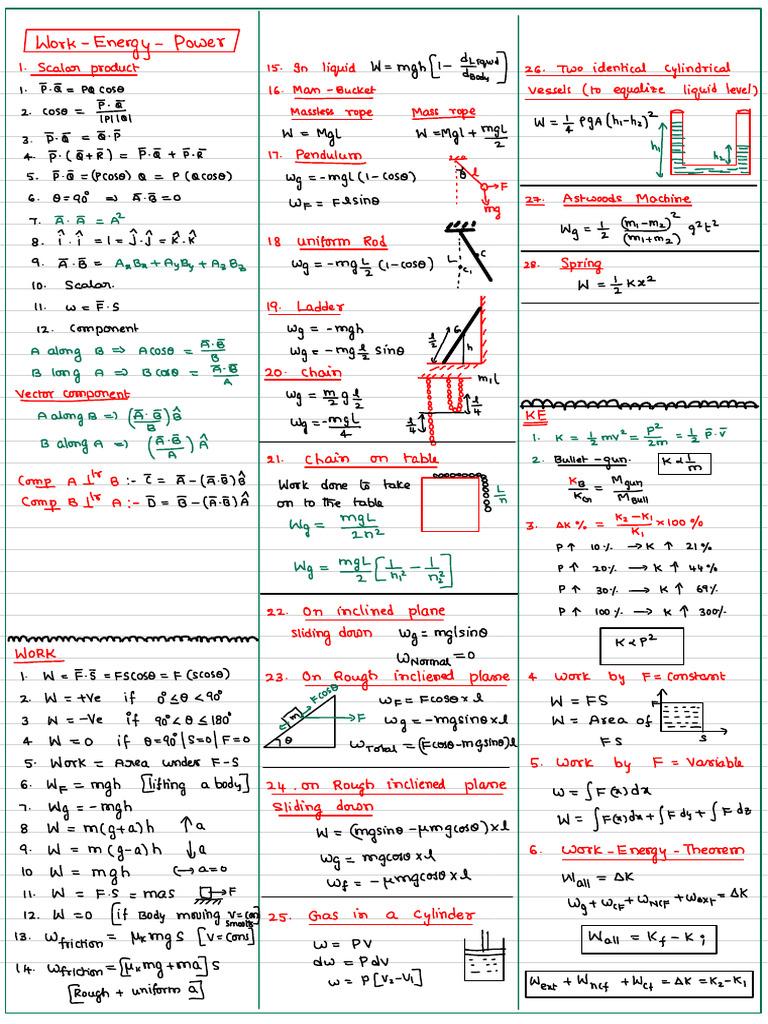 Work-Energy-Power
1. Scalar product
1. P̄·Q̄ = PQ cosθ
2. cosθ = P̄·Q̄ / |P||Q|
3. P̄·Q̄ = Q̄·P̄
4. P̄·(Q̄+R̄) = P̄·Q̄ + P̄·R̄
5. P̄·Q̄ = (Pcosθ) Q = P (Qcosθ)
6. θ=90° ⇒ Ā·Q̄=0
7. Ā·Ā = A²
8. î·î = 1 = ĵ·ĵ = k̂·k̂
9. Ā·B̄ = AxBx + AyBy + AzBz
10. Scalar
11. W = F̄·S
12. Component
A along B ⇒ A cosθ = Ā·B̄ / B
B long A ⇒ B cosθ = Ā·B̄ / A
Vector component
A along B ⇒ (Ā·B̄ / B) B̂
B along A ⇒ (Ā·B̄ / A) Â
Comp A ⊥lr B :- C̄ = Ā-(Ā·B̄)B̂
Comp B ⊥lr A :- D̄ = B̄-(Ā·B̄)Â
WORK
1. W = F̄·S̄ = FScosθ = F (Scosθ)
2. W = +Ve if 0°≤θ<90°
3 W = -Ve if 90°<θ≤180°
4 W = 0 if θ=90° | S=0 | F=0
5. Work = Area under F-S
6. WF = mgh [lifting a body]
7. Wg = -mgh
8 W = m(g+a)h ↑a
9. W = m(g-a)h ↓a
10 W = mgh (→a=0
11. W = F·S = mas → F
12. W = 0 [if Body moving V=Con] Smooth
13. Wfriction = μk mg S [V=Cons]
14. Wfriction = [μk mg + ma] S
[Rough + uniform ā]
15. In liquid W = mgh [1 - dLiquid / dBody]
16. Man-Bucket
Massless rope Mass rope
W = Mgl W = Mgl + mgL / 2
17. Pendulum
Wg = -mgl (1-cosθ)
WF = Flsinθ
θ l F mg
18 uniform Rod
Wg = -mg L/2 (1-cosθ)
L C C₁
19. Ladder
Wg = -mgh
Wg = -mg l/2 sinθ
l/2 G h
20. chain
Wg = m/2 g l/2
Wg = -mgL / 4
m,l l/4 l/4
21. Chain on table
Work done to take
on to the table
L/n
Wg = mgL / 2n²
Wg = mgL/2 [1/n₁² - 1/n₂²]
22. On inclined plane
Sliding down Wg = mglsinθ
WNormal = 0
23. On Rough incliened plane
WF = Fcosθ×l
Wg = -mgsinθ×l
WTotal = (Fcosθ-mgsinθ)l
Fcosθ m F θ
24. on Rough incliened plane
Sliding down
W = (mgsinθ - μmgcosθ)×l
Wg = mgcosθ×l
Wf = -μmgcosθ×l
25. Gas in a Cylinder
W = PV
dW = PdV
W = P[V₂-V₁]
26. Two identical cylindrical
vessels (to equalize liquid level)
W = 1/4 ρgA(h₁-h₂)²
h₁ h₂
27. Astwoods Machine
Wg = 1/2 (m₁-m₂)² / (m₁+m₂) g²t²
28. Spring
W = 1/2 Kx²
KE
1. K = 1/2 mv² = P²/2m = 1/2 P̄·v̄
2. Bullet-gun. K α 1/m
KB / KGn = Mgun / MBull
3. ΔK% = K₂-K₁ / K₁ ×100%
P↑ 10% → K↑ 21%
P↑ 20% → K↑ 44%
P↑ 30% → K↑ 69%
P↑ 100% → K↑ 300%
K α P²
4 Work by F = Constant
W = FS
W = Area of
FS
F S
5. Work by F = Variable
W = ∫F(x)dx
W = ∫F(x)dx + ∫F dy + ∫F dz
6. Work-Energy-Theorem
Wall = ΔK
Wg + WCF + WNCF + Wext = ΔK
Wall = Kf - Ki
Wext + Wncf + Wcf = ΔK = K₂-K₁